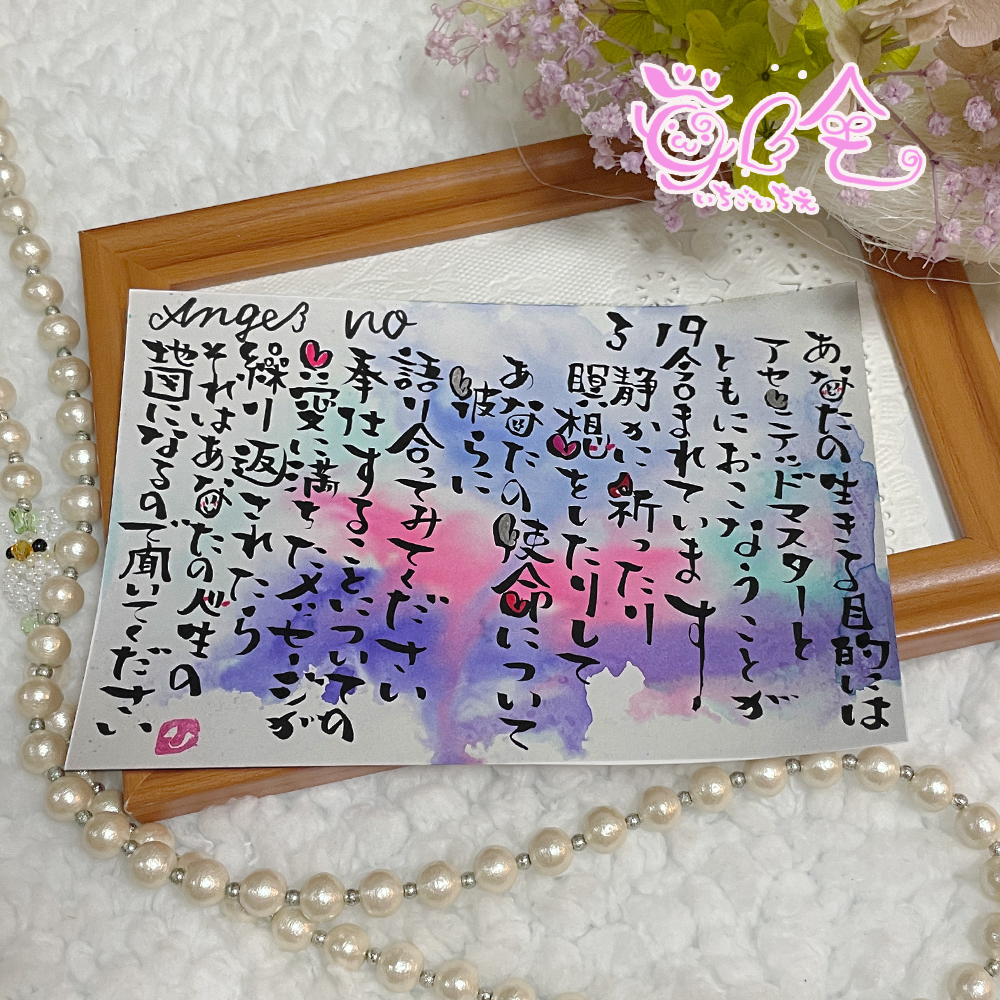 Angel no 319
あなたの生きる目的には
アセンデッドマスターと
ともにおこなうことが
含まれています
静かに祈ったり
瞑想をしたりして
あなたの使命について
彼らに
語り合ってみてください
奉仕することについての
愛に満ちたメッセージが
繰り返されたら
それはあなたの人生の
地図になるので聞いてください
いちごいちえ